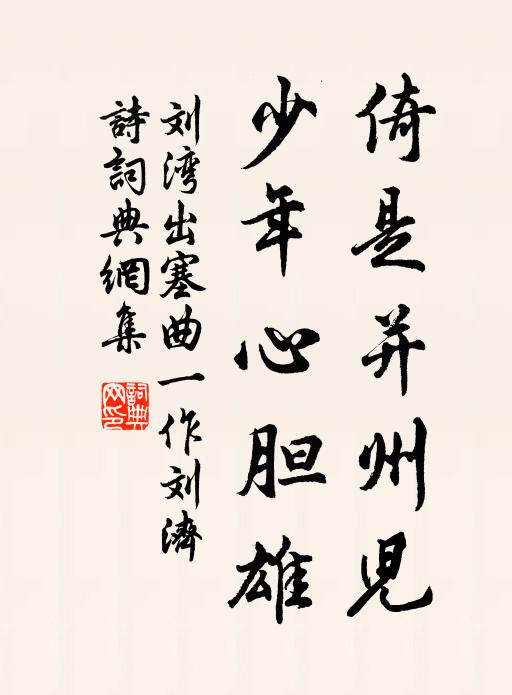 倚是并州児
少年心胆雄
刘湾出塞曲一作刘濟
詩詞典網集
詞典
网印